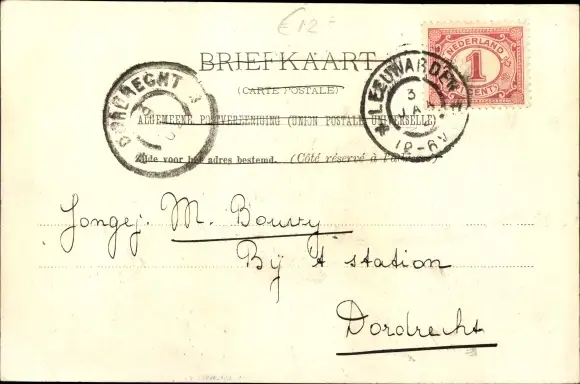 €12-
BRIEFKAART
(CARTE POSTALE)
ALGEMEENE POSTVEREENIGING (UNION POSTALE UNIVERSELLE)
Zijde voor het adres bestemd. (Côté réservé à l'adresse)
DORDRECHT
LEEUWARDEN
3
JAN
NEDERLAND
1
CENT
Jongej. M. Bouvy
Bij 't station
Dordrecht